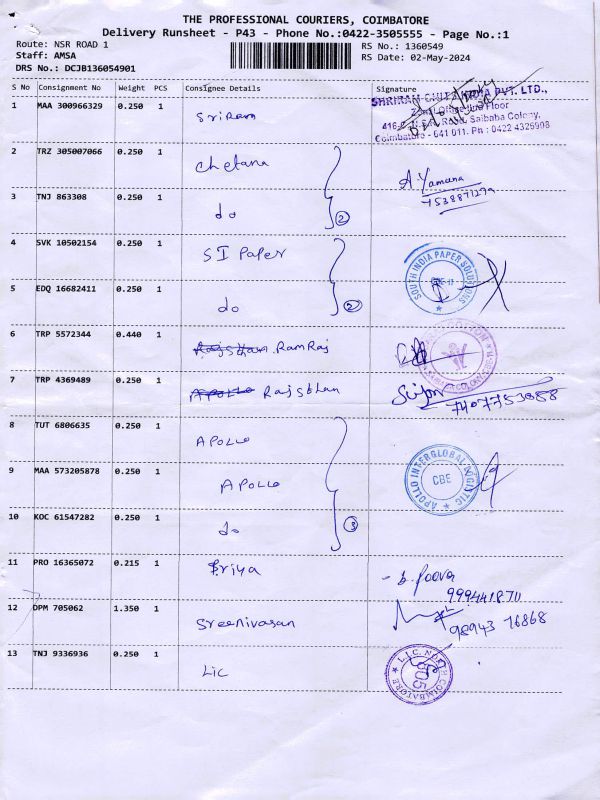 THE PROFESSIONAL COURIERS, COIMBATORE
Delivery Runsheet - P43 - Phone No.:0422-3505555 - Page No.:1
Route: NSR ROAD 1
RS No.: 1360549
Staff: AMSA
RS Date: 02-May-2024
DRS No.: DCJB136054901
S No Consignment No Weight PCS Consignee Details Signature
1 MAA 300966329 0.250 1 Sriram
SHRIRAM CHITS INDIA PVT. LTD.,
Floor
Saibaba Colony,
Coimbatore - 641 011. Ph : 0422 4325998
2 TRZ 305007066 0.250 1 Chetana
A. Yamuna
3 TNJ 863308 0.250 1 do 2
4 SVK 10502154 0.250 1 SI Paper
SOUTH INDIA PAPER SOLUTIONS
5 EDQ 16682411 0.250 1 do 2
6 TRP 5572344 0.440 1 Rajsthan RamRaj
7 TRP 4369489 0.250 1 Apollo Rajsthan
8 TUT 6806635 0.250 1 APOLLO
9 MAA 573205878 0.250 1 APOLLO
APOLLO INTERGLOBAL LOGISTIC
CBE
10 KOC 61547282 0.250 1 do 3
11 PRO 16365072 0.215 1 Priya
12 DPM 705062 1.350 1 Sreenivasan
98943 76868
13 TNJ 9336936 0.250 1 LIC
L.I.C. NORTH COIMBATORE